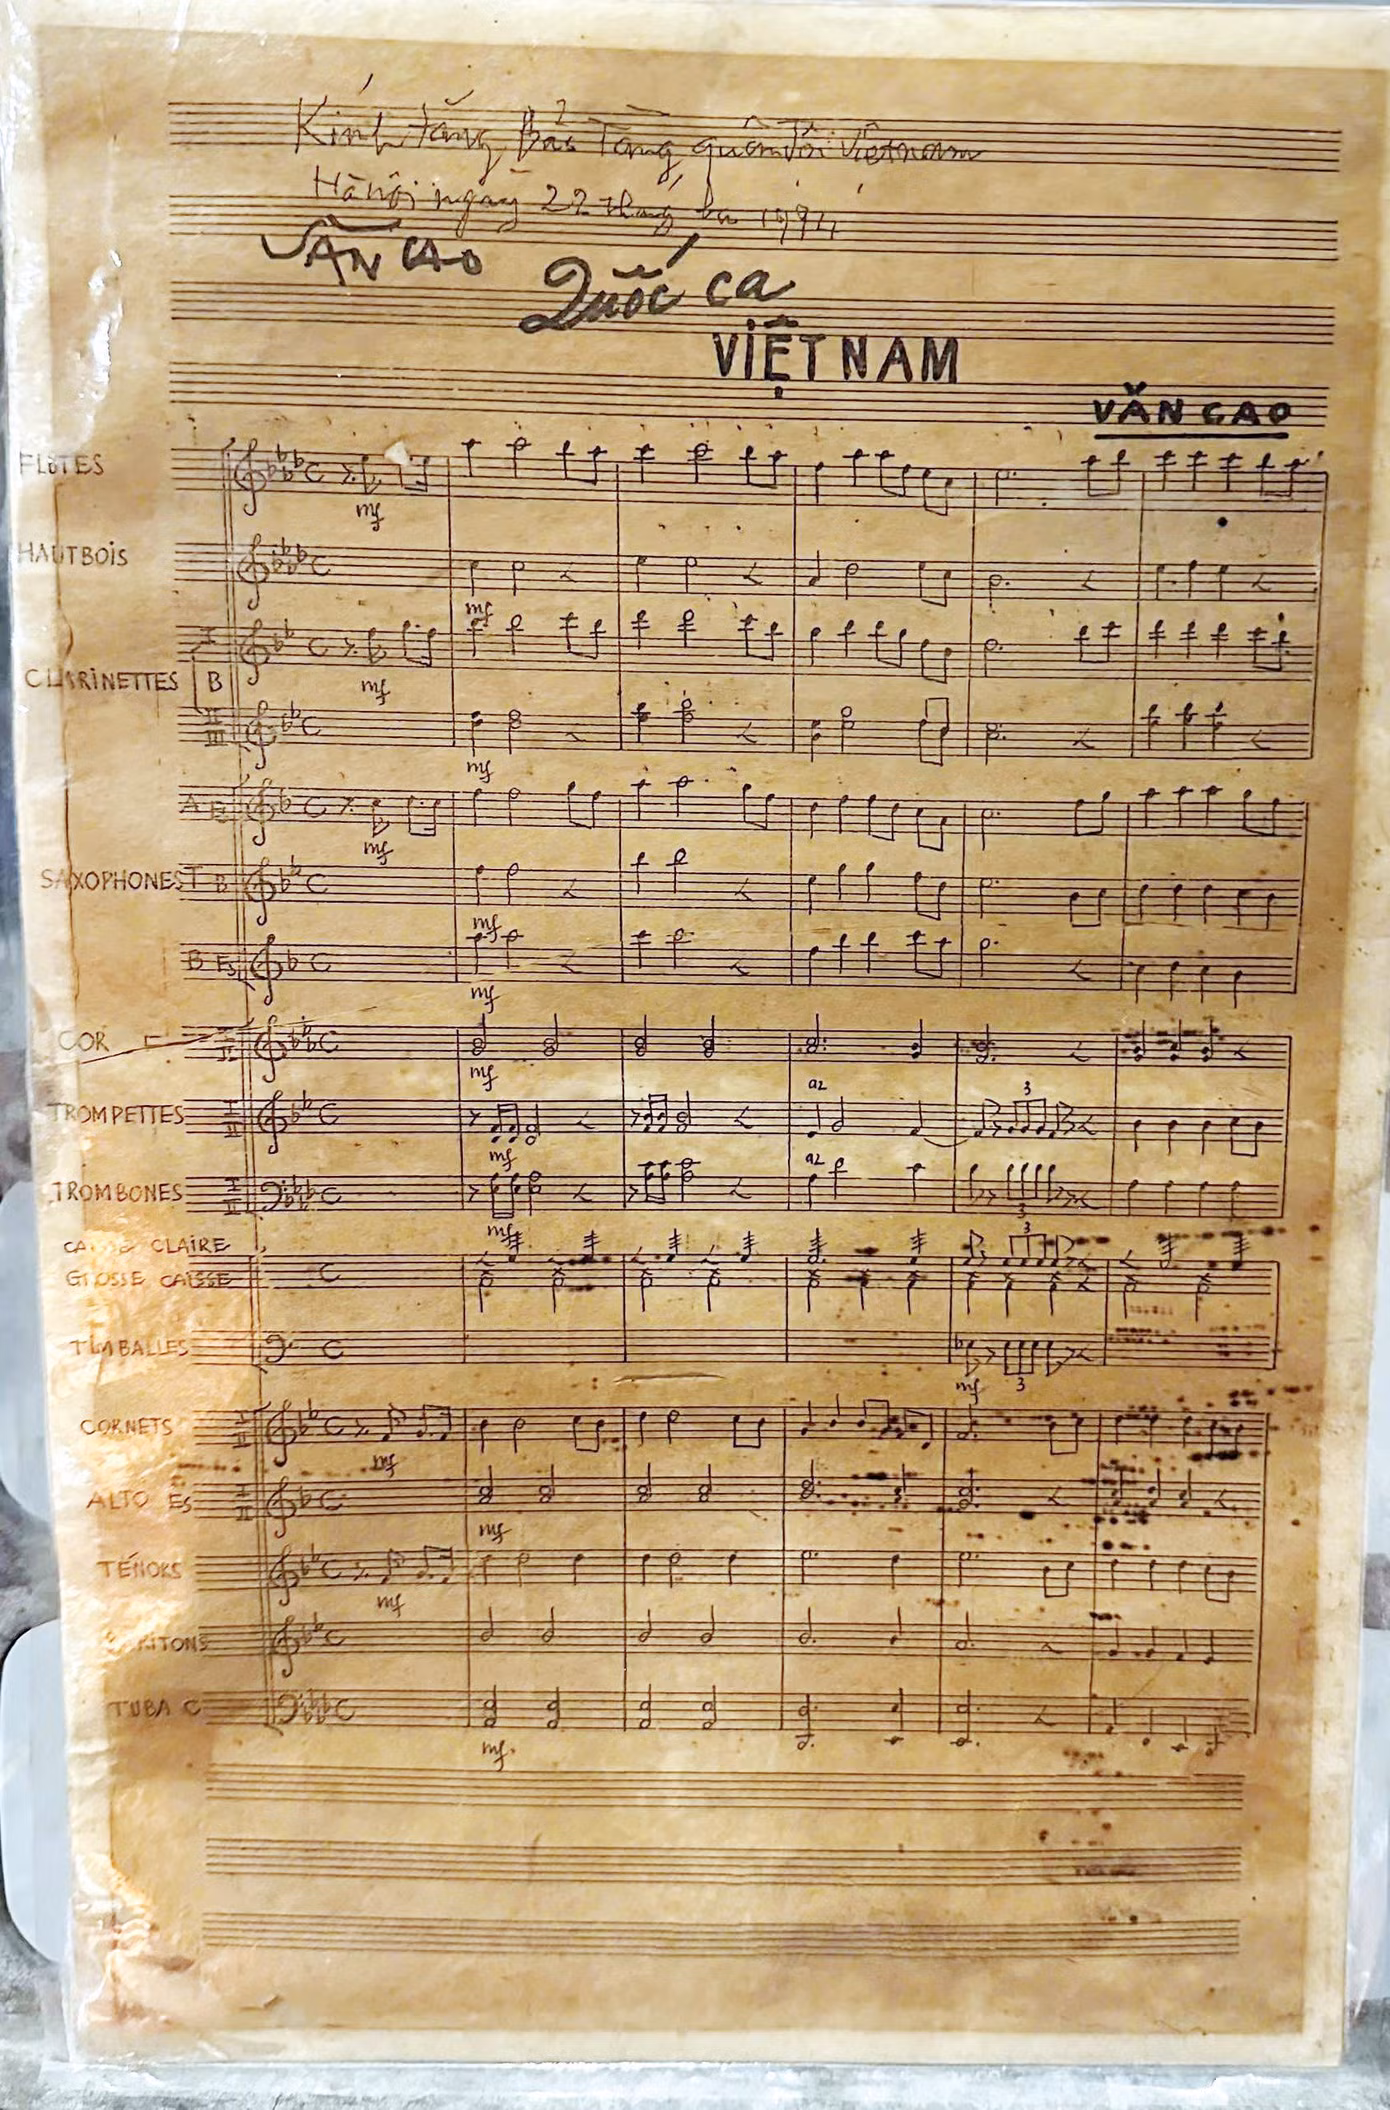 Kính tặng Bảo Tàng quân đội Việt nam
Hà nội ngày 22 tháng ba 1994
VĂN CAO
Quốc ca
VIỆT NAM
VĂN CAO
FLÛTES
mf
HAUTBOIS
mf
CLARINETTES B
I
mf
II
III
mf
SAXOPHONES
A Es
mf
T B
mf
B Es
mf
COR F I II
mf
TROMPETTES I II
mf
a2
3
TROMBONES I II
mf
a2
3
CAISSE CLAIRE
3
GROSSE CAISSE
TIMBALLES
mf
3
CORNETS I II
mf
ALTO Es I II
mf
TÉNORS
mf
BARITONS
TUBA C
mf.